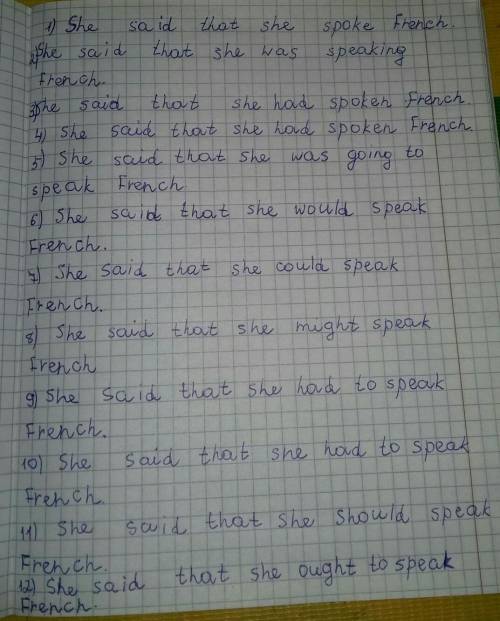 1) She said that she spoke French.
2) She said that she was speaking
French.
3) She said that she had spoken French
4) She said that she had spoken French.
5) She said that she was going to
speak French
6) She said that she would speak
French.
7) She said that she could speak
French.
8) She said that she might speak
French
9) She said that she had to speak
French.
10) She said that she had to speak
French.
11) She said that she should speak
French.
12) She said that she ought to speak
French.